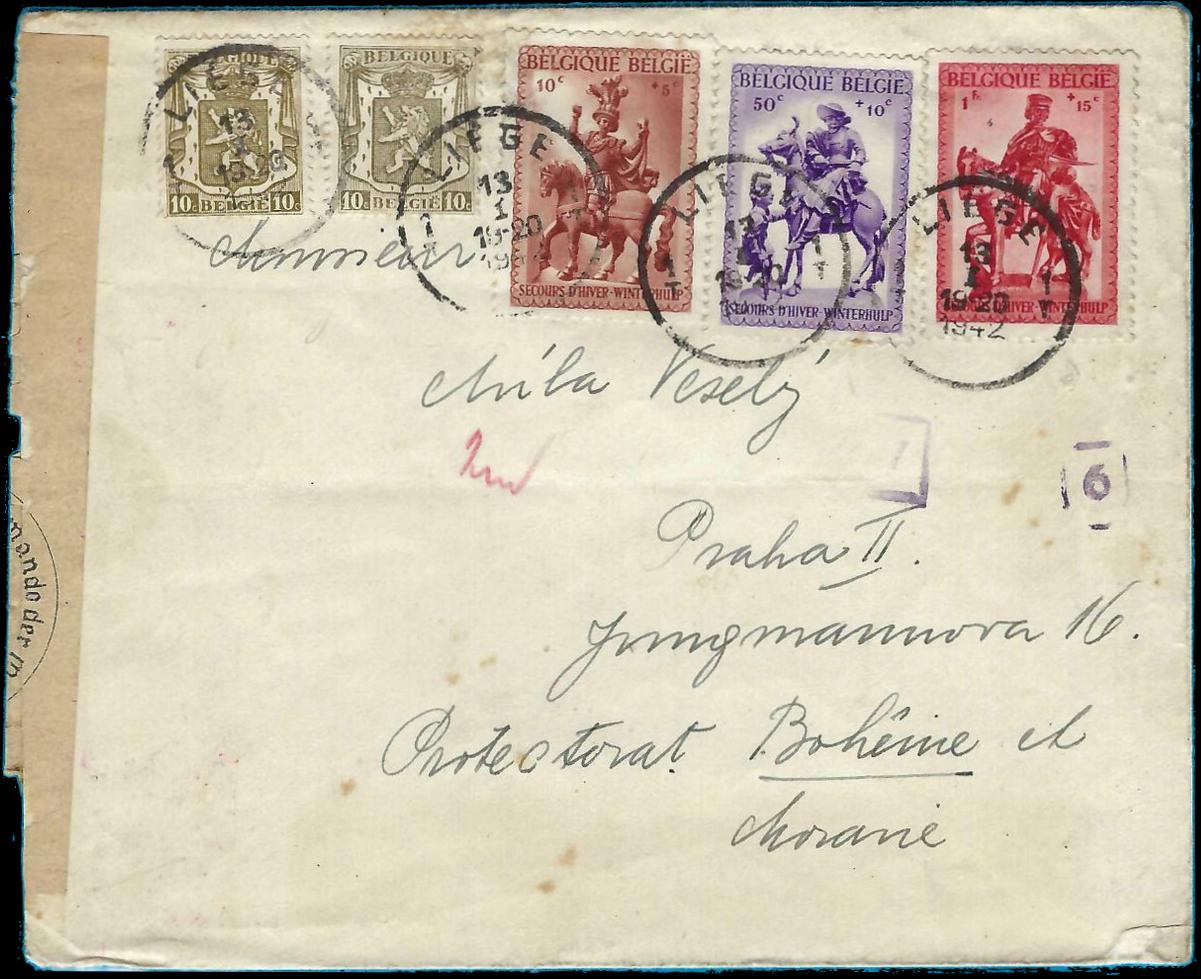 BELGIQUE
10c BELGIË 10c
BELGIQUE
10c BELGIË 10c
BELGIQUE BELGIË
10c +5c
SECOURS D'HIVER-WINTERHULP
BELGIQUE BELGIË
50c +10c
SECOURS D'HIVER-WINTERHULP
BELGIQUE BELGIË
1Fr +15c
D'HIVER-WINTERHULP
LIEGE
13
1
LIEGE
13
1
19-20
1942
1 T
LIEGE
13
1 T 1 T
LIEGE
13
1
19-20
1942
1
Monsieur
Míla Veselý
6
Praha II.
Jungmannova 16.
Protectorat Bohême et
Moravie
mando der